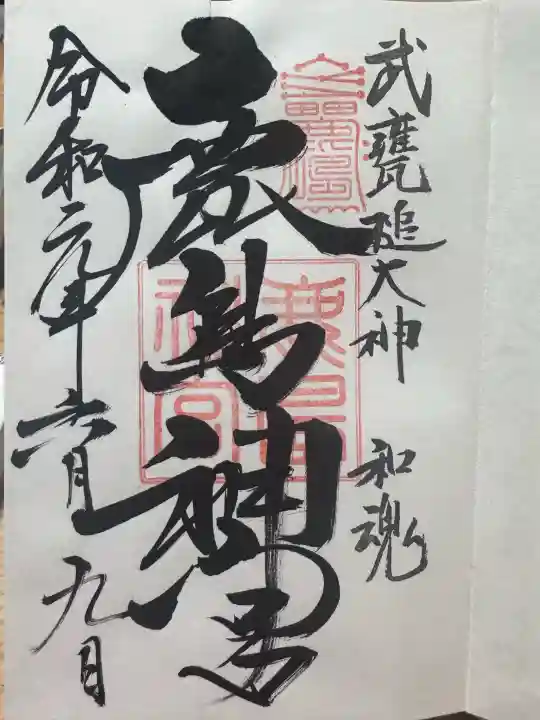 武甕槌大神 和魂
鹿島神宮
鹿島
神宮
令和元年六月九日